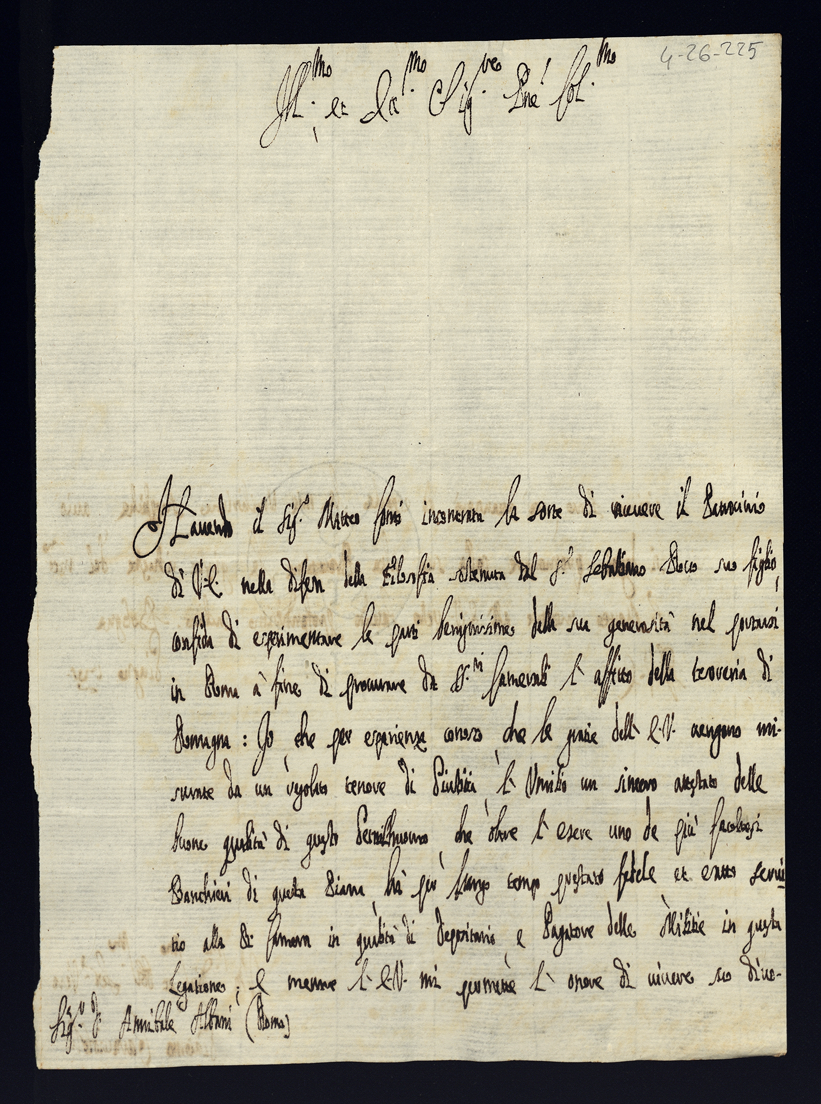 4-26-225
Ill.mo et Ecc.mo Sig.re P̃ne Col.mo
Havendo il Sig.r Matteo incontrata la sorte di ricevere il Patrocinio
di V.E. nella difesa della Filosofia sostenuta dal S.r Sebastiano suo figlio,
confida di esperimentare le parti benignissime della sua generosità nel portarsi
in Roma à fine di procurare da SS.ri Camerali l'affitto della tesoreria di
Romagna: Io che per esperienza conosco che le grazie dell'E.V. vengono mi-
surate da un regolato tenore di Giustizia, l'Umilio un sincero attestato delle
buone qualità di questo Gentilhuomo, che oltre l'essere uno de più facoltosi
Banchieri di questa Piazza, hà per lungo tempo prestato fedele et esatto servi
tio alla Camera in qualità di Depositario, e Pagatore delle Militie in questa
Legatione; e mentre l'E.V. mi permette l'onore di vivere suo divo-
Sig.r D. Annibale Albani (Roma)